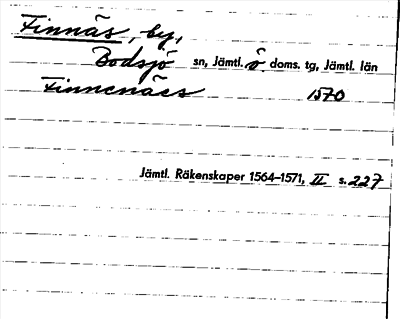 Finnäs, by,
Bodsjö sn, Jämtl. ö. doms. tg, Jämtl. län
Finnenäes 1570
Jämtl. Räkenskaper 1564–1571, II s. 227